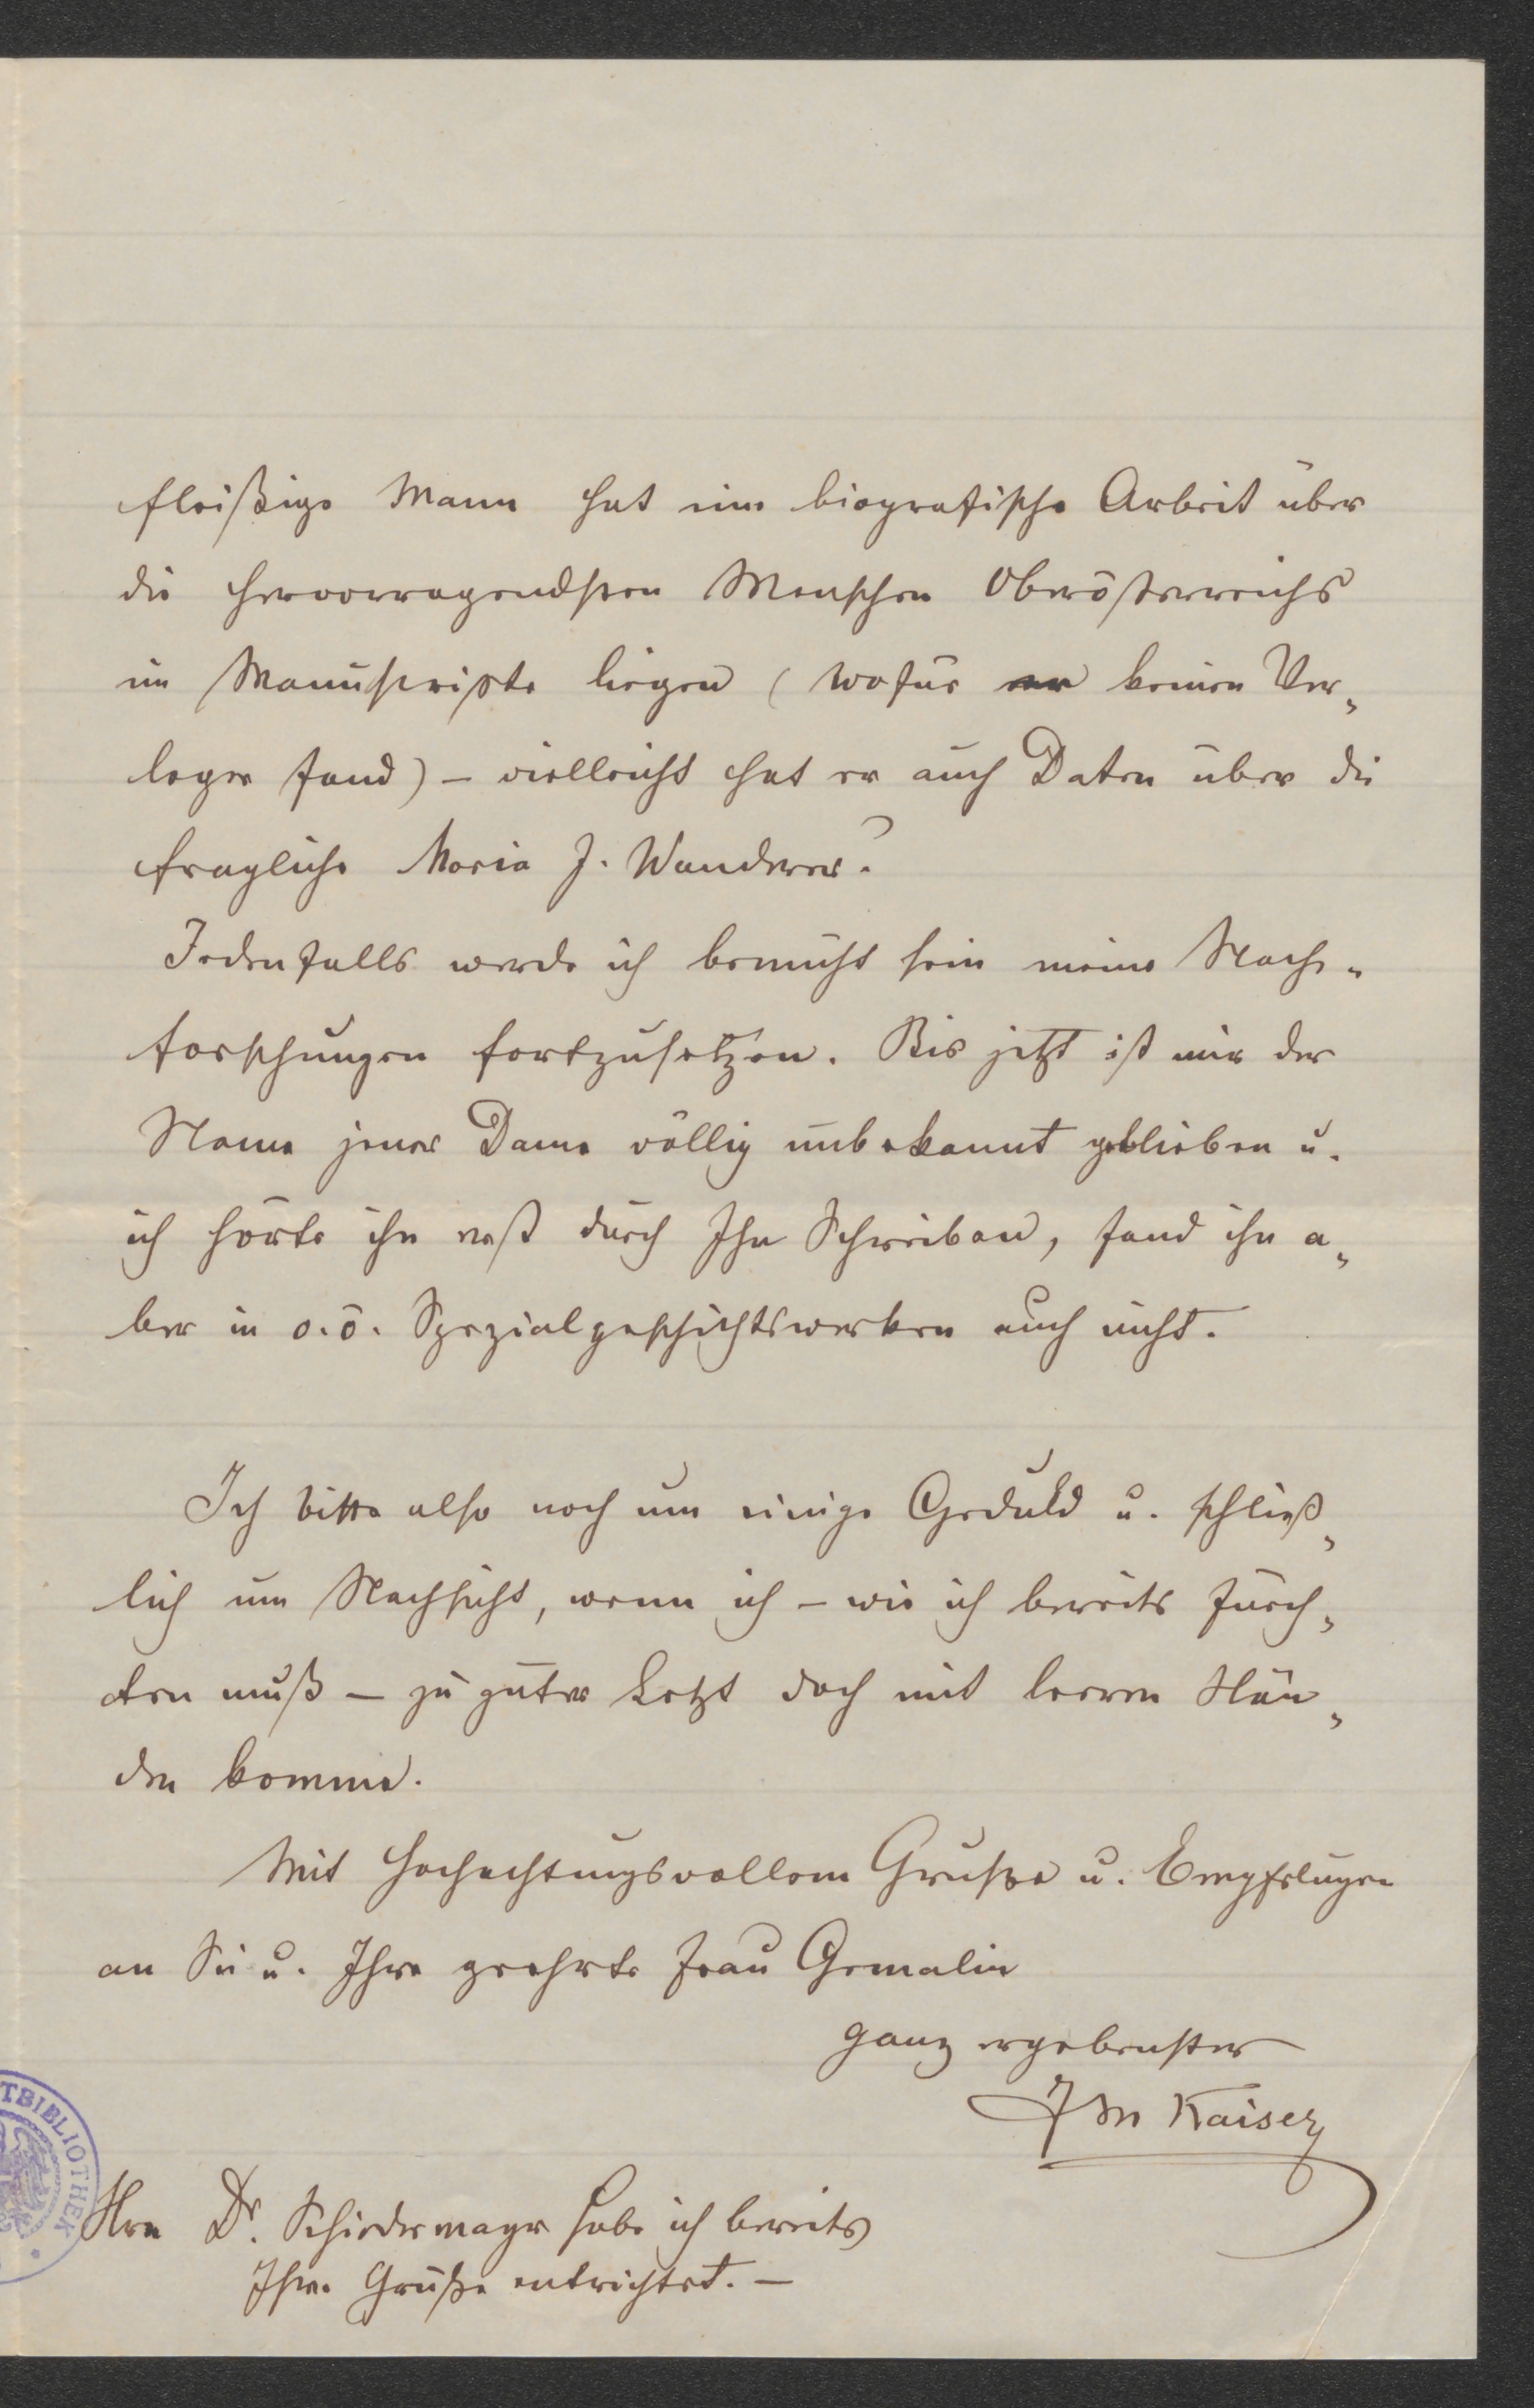 fleißige Mann hat eine biografische Arbeit über
die hervorragendsten Menschen Oberösterreichs
im Manuskripte liegen (wofür er keinen Ver„
leger fand) – vielleicht hat er auch Daten über die
fragliche Maria J. Wanderer?
Jedenfalls werde ich bemüht sein meine Nach„
forschungen fortzusetzen. Bis jetzt ist mir der
Name jener Dame völlig unbekannt geblieben u.
ich hörte ihn erst durch Ihr Schreiben, fand ihn a„
ber in o.ö. Spezialgeschichtswerken auch nicht.
Ich bitte also noch um einige Geduld u. schließ„
lich um Nachsicht, wenn ich – wie ich bereits fürch„
ten muß – zu guter Letzt doch mit leeren Hän„
den komme.
Mit hochachtungsvollem Gruße u. Empfelugen
an Sie u. Ihre geehrte Frau Gemalin
ganz ergebenster
J M Kaiser
Hrn Dr. Schiedermayr habe ich bereits
Ihre Grüße entrichtet. –
TBIBLIOTHEK